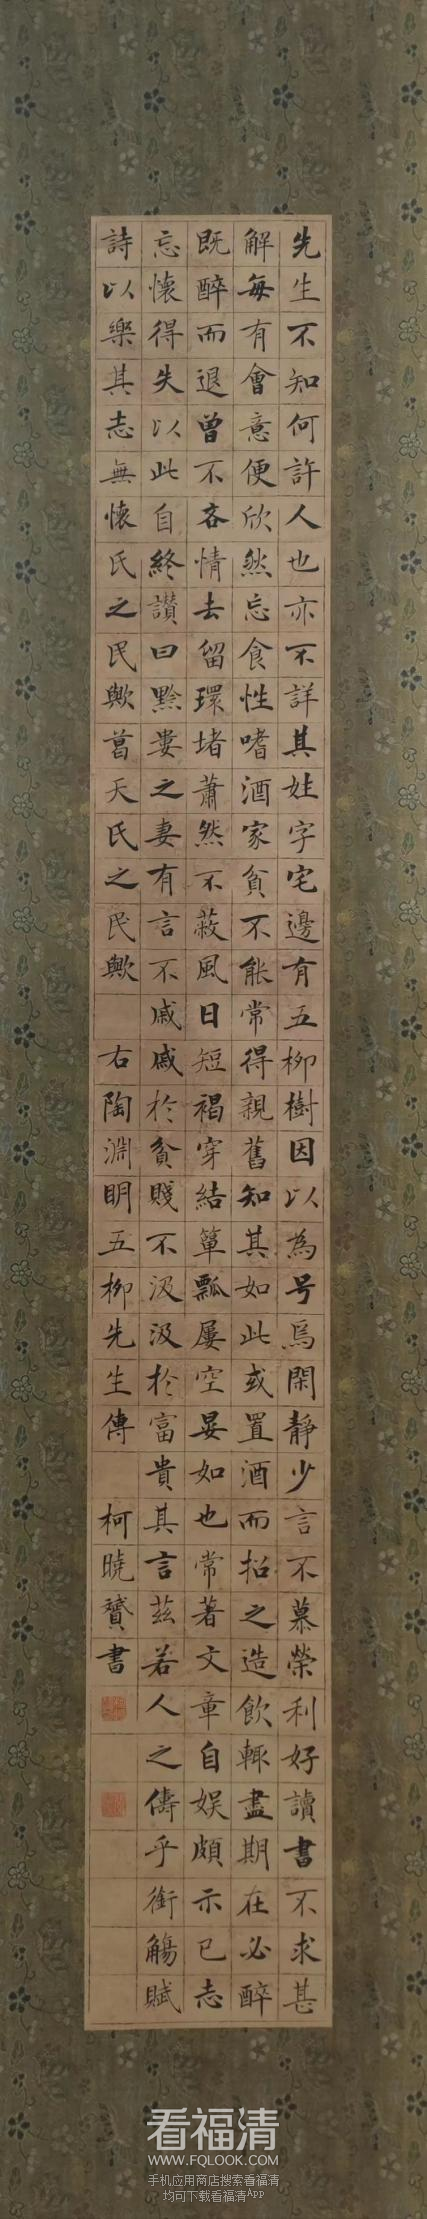 先生不知何許人也亦不詳其姓字宅邊有五柳樹因以為号焉閑静少言不慕榮利好讀書不求甚
解每有會意便欣然忘食性嗜酒家貧不能常得親舊知其如此或置酒而招之造飲輒盡期在必醉
既醉而退曾不吝情去留環堵蕭然不蔽風日短褐穿結簞瓢屢空晏如也常著文章自娱頗示己志
忘懷得失以此自終讃曰黔婁之妻有言不戚戚於貧賤不汲汲於富貴其言茲若人之儔乎銜觴賦
詩以樂其志無懷氏之民歟葛天氏之民歟 右陶淵明五柳先生傳 柯曉贇書
看福清
WWW.FQLOOK.COM
手机应用商店搜索看福清
均可下载看福清App